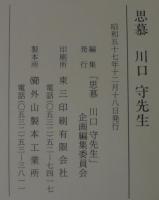 思慕 川口 守先生
昭和五十七年十二月十八日発行
編集
発行
「思慕 川口 守先生」
企画編集委員会
印刷所 東三印刷有限会社
電話〇五三二(五二)七四一七
製本所 ㈲外山製本工業所
電話〇五三二(五三)三八一一